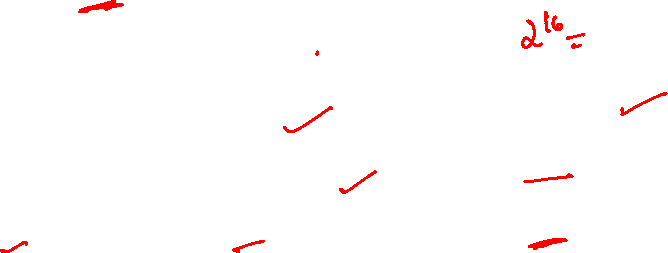 2^16 =